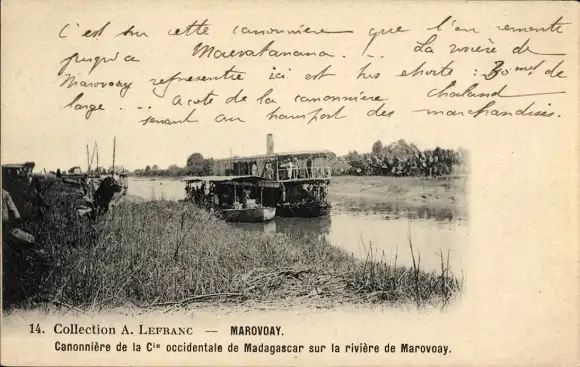 C'est sur cette canonnière que l'on remonte
jusqu'à Maevatanana. ... La rivière de
Marovoay représentée ici est très étroite : 30m de
large. ... A côté de la canonnière chaland
servant au transport des marchandises.
14. Collection A. LEFRANC — MAROVOAY.
Canonnière de la Cie occidentale de Madagascar sur la rivière de Marovoay.